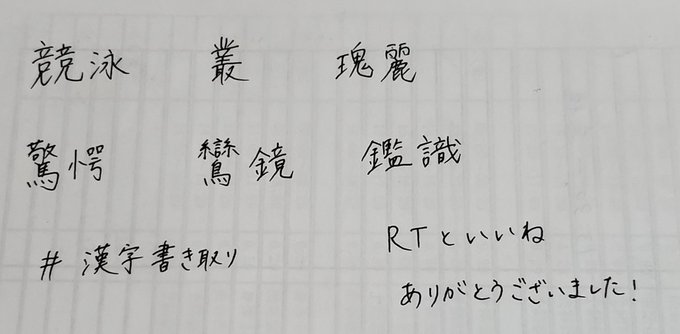 競泳 叢 瑰麗
驚愕 鸞鏡 鑑識
#漢字書き取り
RTといいね
ありがとうございました!